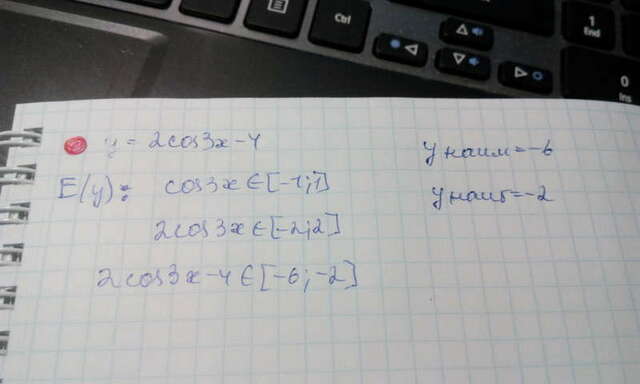 Ctrl
1
End
0
Ins
y = 2cos3x-4
E(y): cos3x∈[-1;1]
2cos3x∈[-2;2]
2cos3x-4∈[-6;-2]
y наим=-6
y наиб=-2